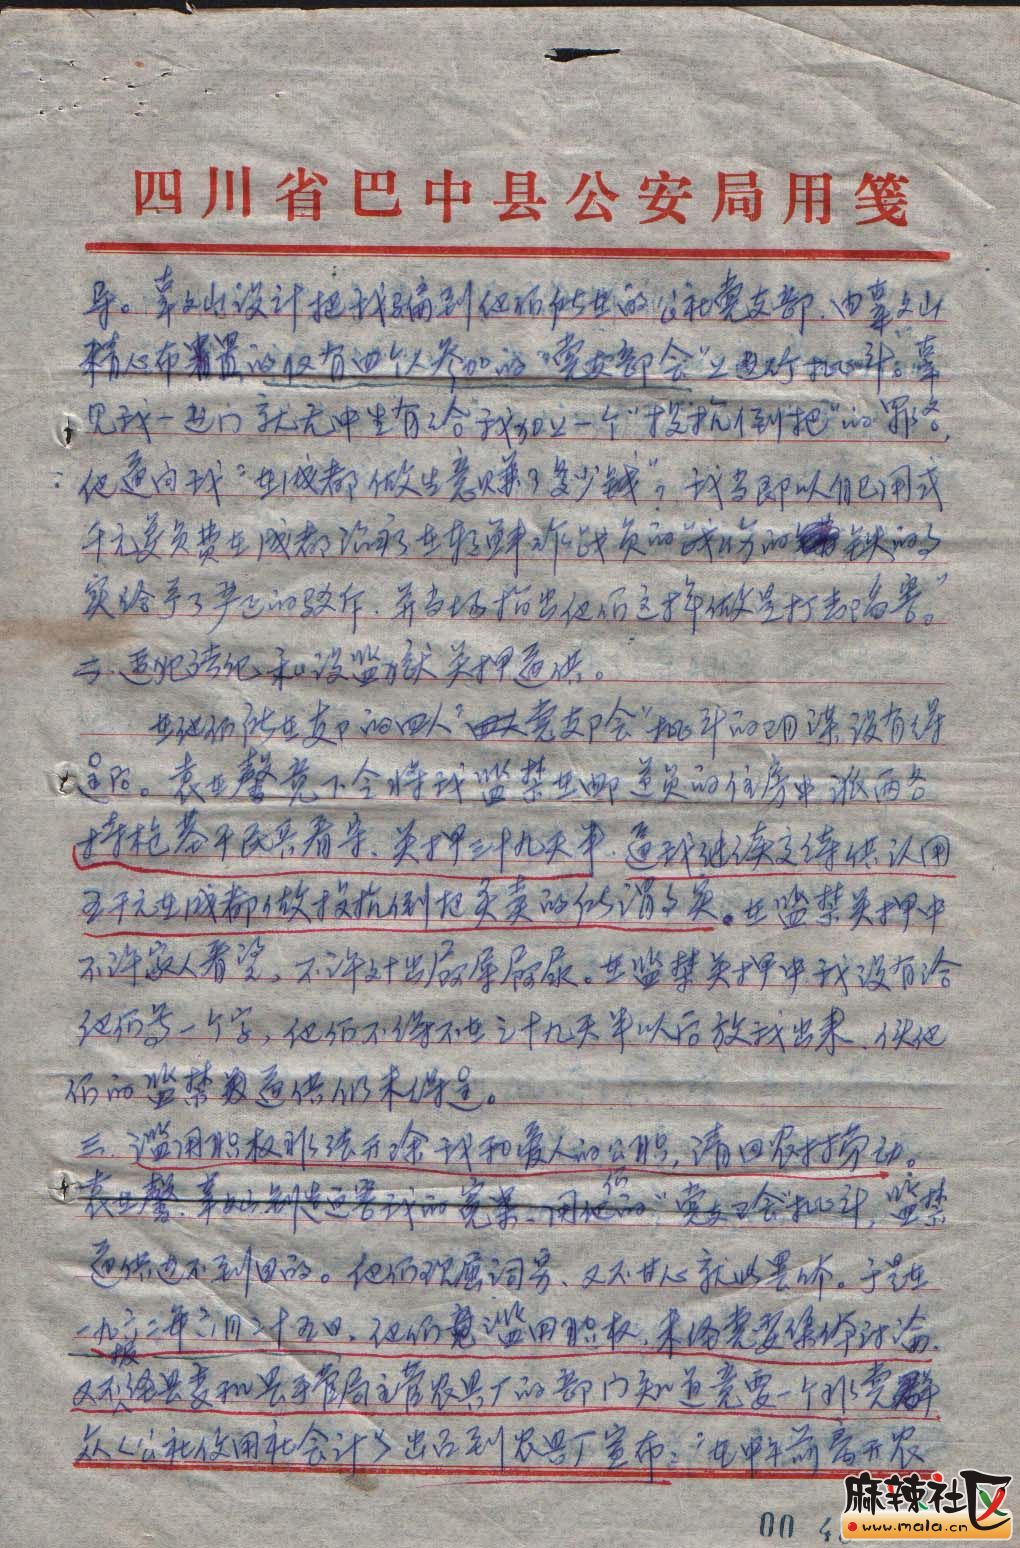 四川省巴中县公安局用笺
导。辜文山设计把我骗到他们所在的公社党支部.由辜文山
精心布置的仅有四个人参加的“党支部会”上进行批斗。辜
见我一进门就无中生有给我加上一个“投机倒把”的罪名,
他逼问我“在成都做生意赚了多少钱”,我当即以自己用
千元差旅费在成都治病在朝鲜作战负的战伤的铁的事
实给予了严正的驳斥.并当场指出他们这样做是打击陷害。”
二.违犯法纪、私设监狱关押逼供。
在他们所在支部的四人“党支部会”批斗的阴谋没有得
逞后。袁世馨竟下令将我监禁在邮递员的住房中派两名
持枪基干民兵看守、关押三十九天半.逼我继续交待供认用
五千元在成都做投机倒把买卖的所谓事实。在监禁关押中
不许家人看望,不许外出屙屎屙尿。在监禁关押中我没有给
他们写一个字,他们不得不在三十九天半以后放我出来.使他
们的监禁逼供仍未得逞。
三.滥用职权非法开除我和爱人的公职,清回农村劳动。
袁世馨.辜文山制造迫害我的冤案.用他们的“党支部会”批斗,监禁
逼供达不到目的。他们理屈词穷、又不甘心就此罢休。于是在
一九六二年六月二十五日.他们竟滥用职权.未经党委集体讨论.
又不报经县委和县手管局主管农具厂的部门知道竟要一个非党群
众(公社信用社会计)出面到农具厂宣布:“在中午前离开农
00 4
麻辣社区
www.mala.cn